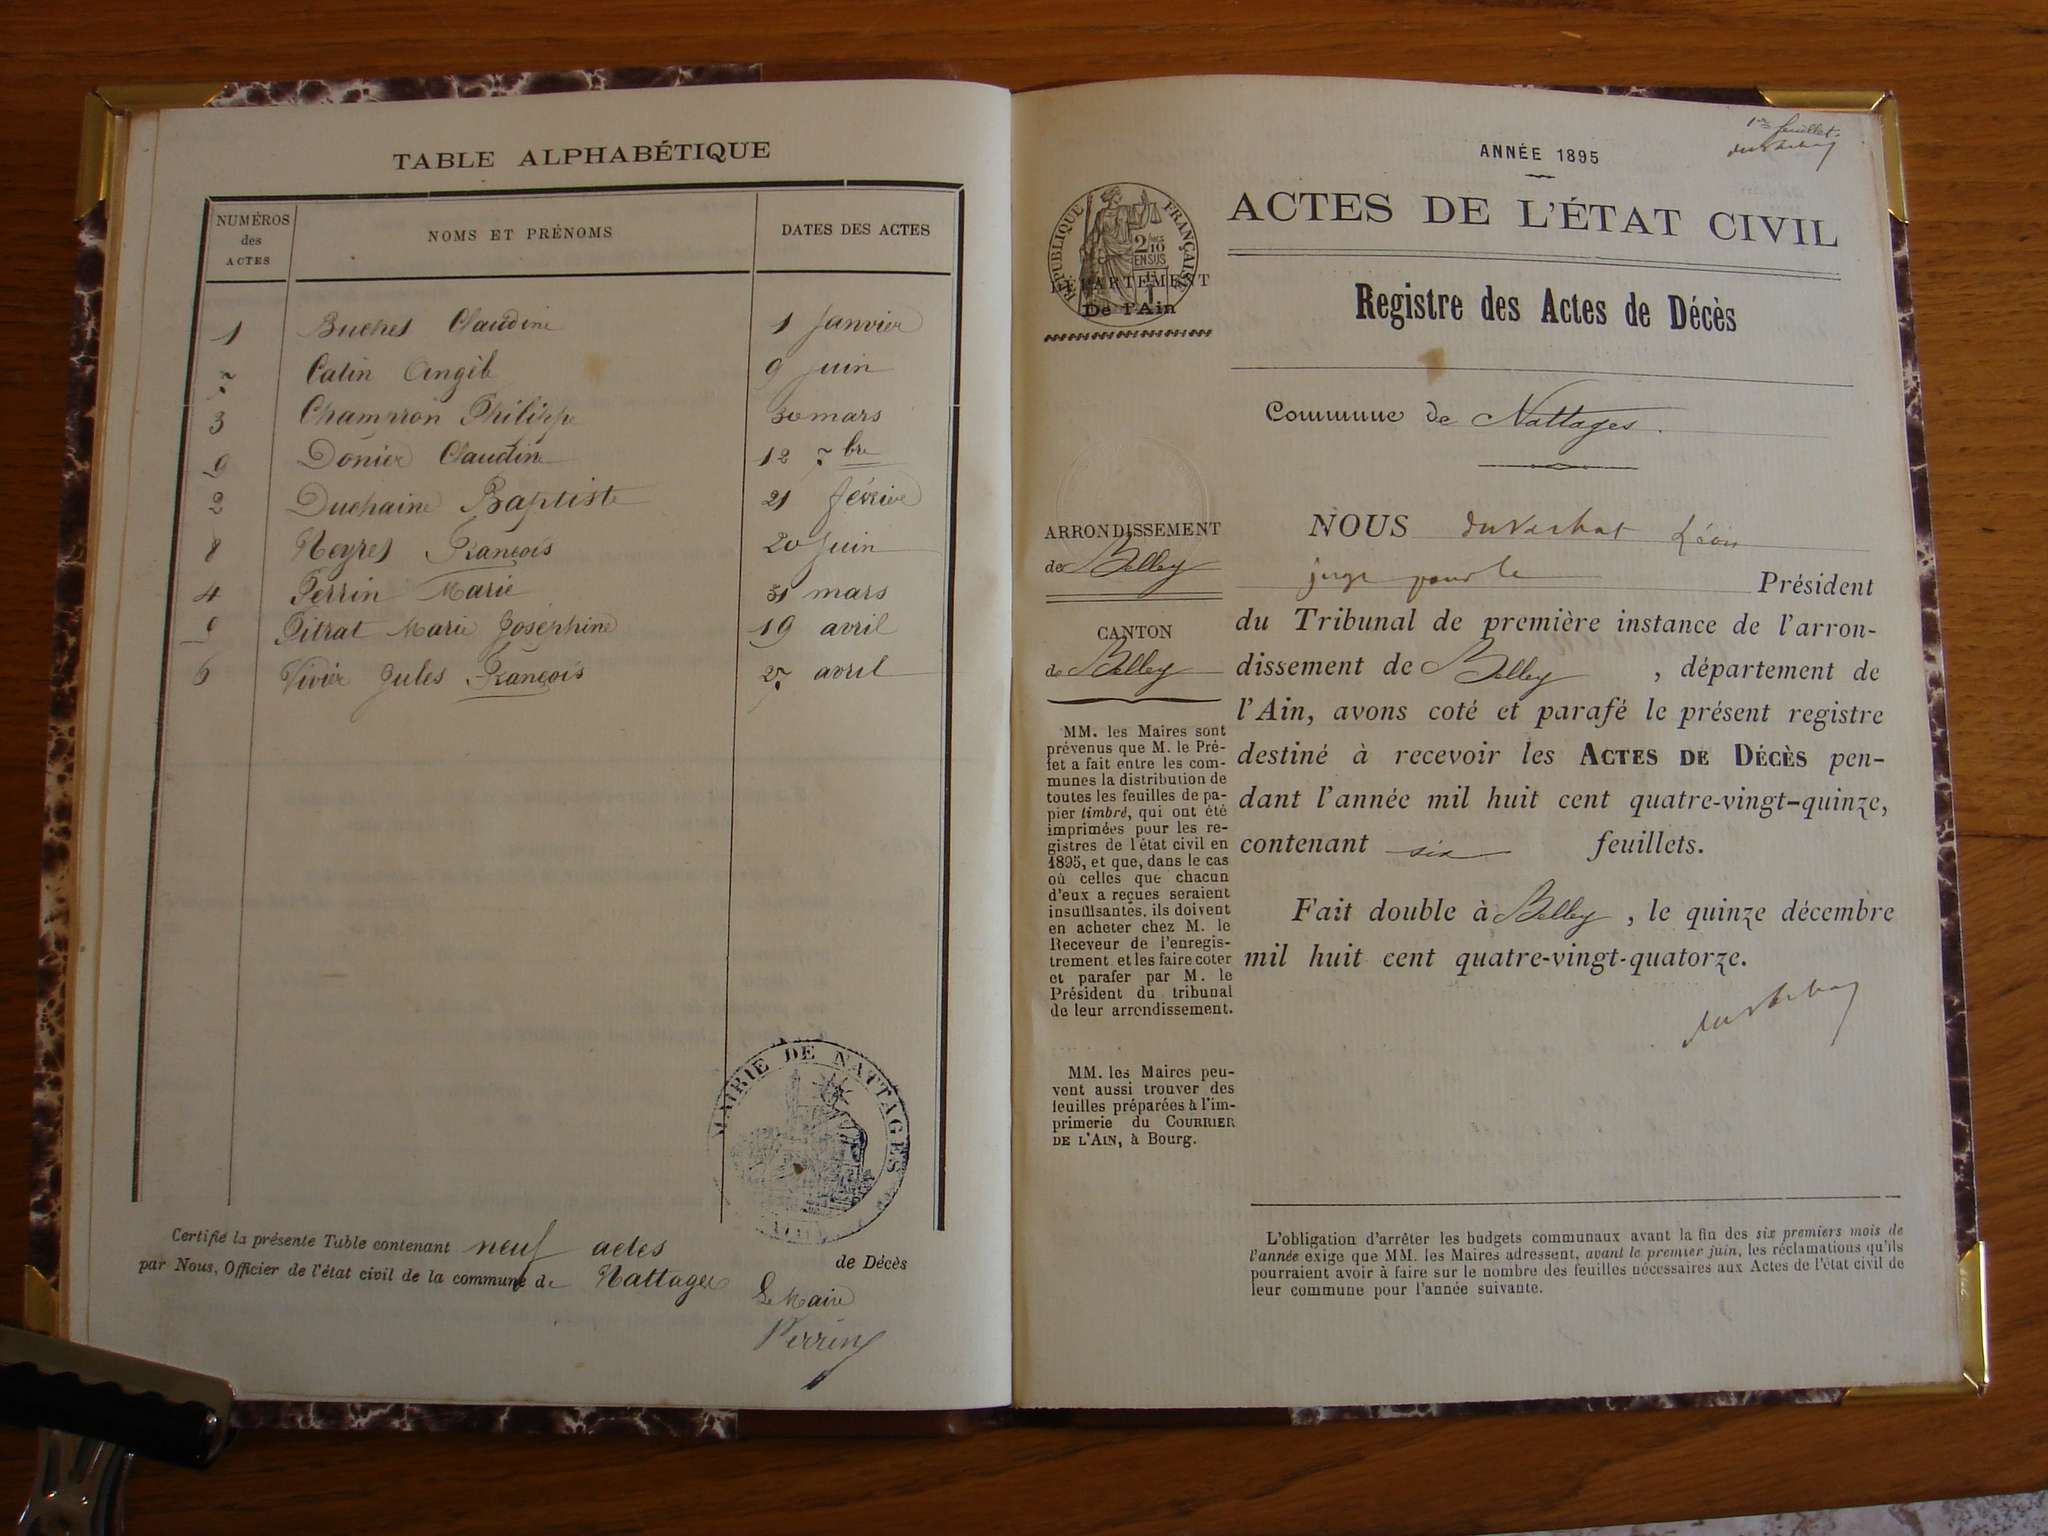 TABLE ALPHABÉTIQUE
NUMÉROS des ACTES
NOMS ET PRÉNOMS
DATES DES ACTES
1 Buchet Claudine 1 Janvier
7 Catin 9 Juin
3 Champion Philippe 30 mars
9 Donier Claudine 12 7bre
2 Duchaine Baptiste 21 février
8 Neyret François 20 Juin
4 Perrin Marie 31 mars
Pitrat Marie Joséphine 19 avril
6 Vivier Jules François 27 avril
MAIRIE DE NATTAGES
Certifié la présente Table contenant neuf actes de Décès
par Nous, Officier de l'état civil de la commune de Nattages
Le Maire
Perrin
1er feuillet.
ANNÉE 1895
ACTES DE L'ÉTAT CIVIL
RÉPUBLIQUE FRANÇAISE
2/10 EN SUS
DÉPARTEMENT
De l'Ain
Registre des Actes de Décès
Commune de Nattages.
ARRONDISSEMENT
de Belley
CANTON
de Belley
MM. les Maires sont
prévenus que M. le Pré-
fet a fait entre les com-
munes la distribution de
toutes les feuilles de pa-
pier timbré, qui ont été
imprimées pour les re-
gistres de l'état civil en
1895, et que, dans le cas
où celles que chacun
d'eux a reçues seraient
insuffisantes, ils doivent
en acheter chez M. le
Receveur de l'enregis-
trement et les faire coter
et parafer par M. le
Président du tribunal
de leur arrondissement.
MM. les Maires peu-
vent aussi trouver des
feuilles préparées à l'im-
primerie du COURRIER
DE L'AIN, à Bourg.
NOUS Léon
juge pour le Président
du Tribunal de première instance de l'arron-
dissement de Belley, département de
l'Ain, avons coté et parafé le présent registre
destiné à recevoir les ACTES DE DÉCÈS pen-
dant l'année mil huit cent quatre-vingt-quinze,
contenant six feuillets.
Fait double à Belley, le quinze décembre
mil huit cent quatre-vingt-quatorze.
L'obligation d'arrêter les budgets communaux avant la fin des six premiers mois de
l'année exige que MM. les Maires adressent, avant le premier juin, les réclamations qu'ils
pourraient avoir à faire sur le nombre des feuilles nécessaires aux Actes de l'état civil de
leur commune pour l'année suivante.